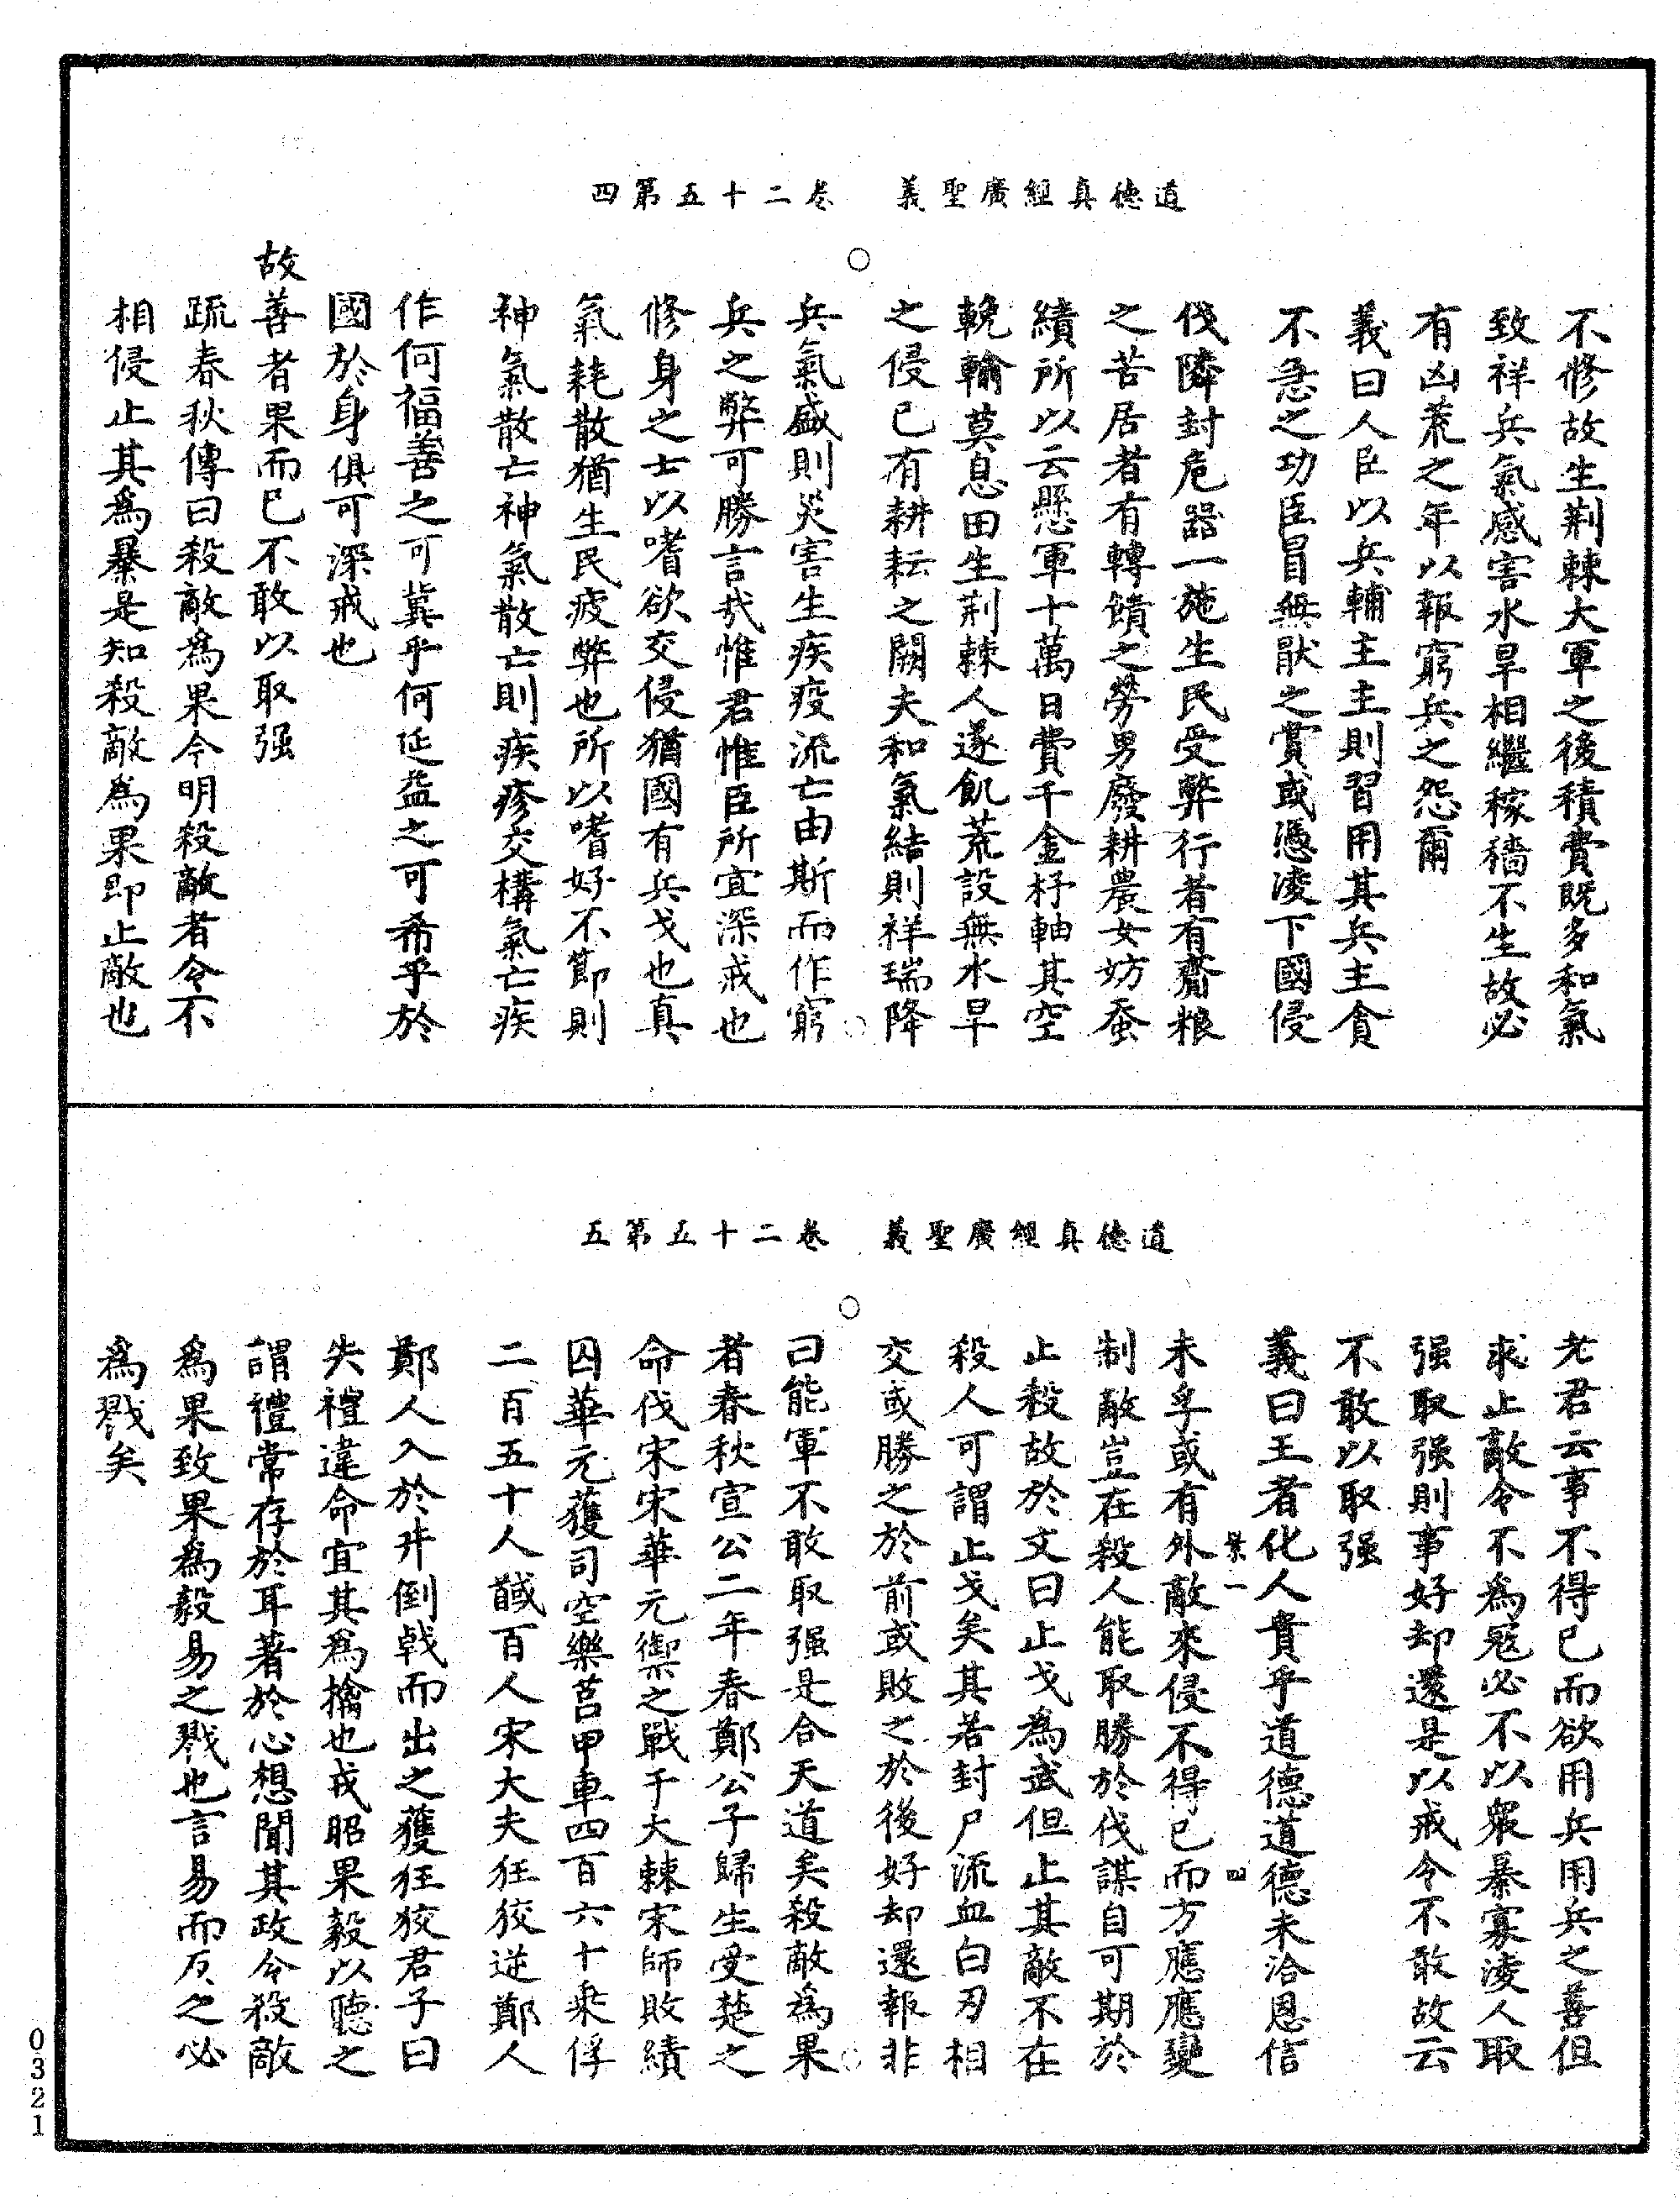 道德真經廣聖義　卷二十五第四
不修故生荆棘大軍之後積費既多和氣
致祥兵氣感害水旱相繼稼穡不生故必
有凶荒之年以報窮兵之怨爾
義曰人臣以兵輔主主則習用其兵主貪
不急之功臣冒無猒之賞或憑凌下國侵
伐隣封危器一施生民受弊行者有齎粮
之苦居者有轉饋之勞男廢耕農女妨蚕
績所以云懸軍十萬日費千金杼軸其空
輓輸莫息田生荆棘人遂飢荒設無水旱
之侵已有耕耘之闕夫和氣結則祥瑞降
兵氣盛則災害生疾疫流亡由斯而作窮
兵之弊可勝言哉惟君惟臣所宜深戒也
修身之士以嗜欲交侵猶國有兵戈也真
氣耗散猶生民疲弊也所以嗜好不節則
神氣散亡神氣散亡則疾疹交構氣亡疾
作何福善之可冀乎何延益之可希乎於
國於身俱可深戒也
故善者果而已不敢以取强
疏春秋傳曰殺敵為果今明殺敵者令不
相侵止其為暴是知殺敵為果即止敵也
道德真經廣聖義　卷二十五第五
老君云事不得已而欲用兵用兵之善但
求止敵令不為寇必不以衆暴寡凌人取
强取强則事好却還是以戒令不敢故云
不敢以取强
義曰王者化人貴乎道德道德未洽恩信
未孚或有外敵來侵不得已而方應應變
制敵豈在殺人能取勝於伐謀自可期於
止殺故於文曰止戈為武但止其敵不在
殺人可謂止戈矣其若封尸流血白刃相
交或勝之於前或敗之於後好却還報非
曰能軍不敢取强是合天道矣殺敵為果
者春秋宣公二年春鄭公子歸生受楚之
命伐宋宋華元禦之戰于大棘宋師敗績
囚華元獲司空樂莒甲車四百六十乘俘
二百五十人馘百人宋大夫狂狡逆鄭人
鄭人入於井倒戟而出之獲狂狡君子曰
失禮違命宜其為擒也戎昭果毅以聽之
謂禮常存於耳著於心想聞其政令殺敵
為果致果為毅易之戮也言易而反之必
為戮矣
四
0321